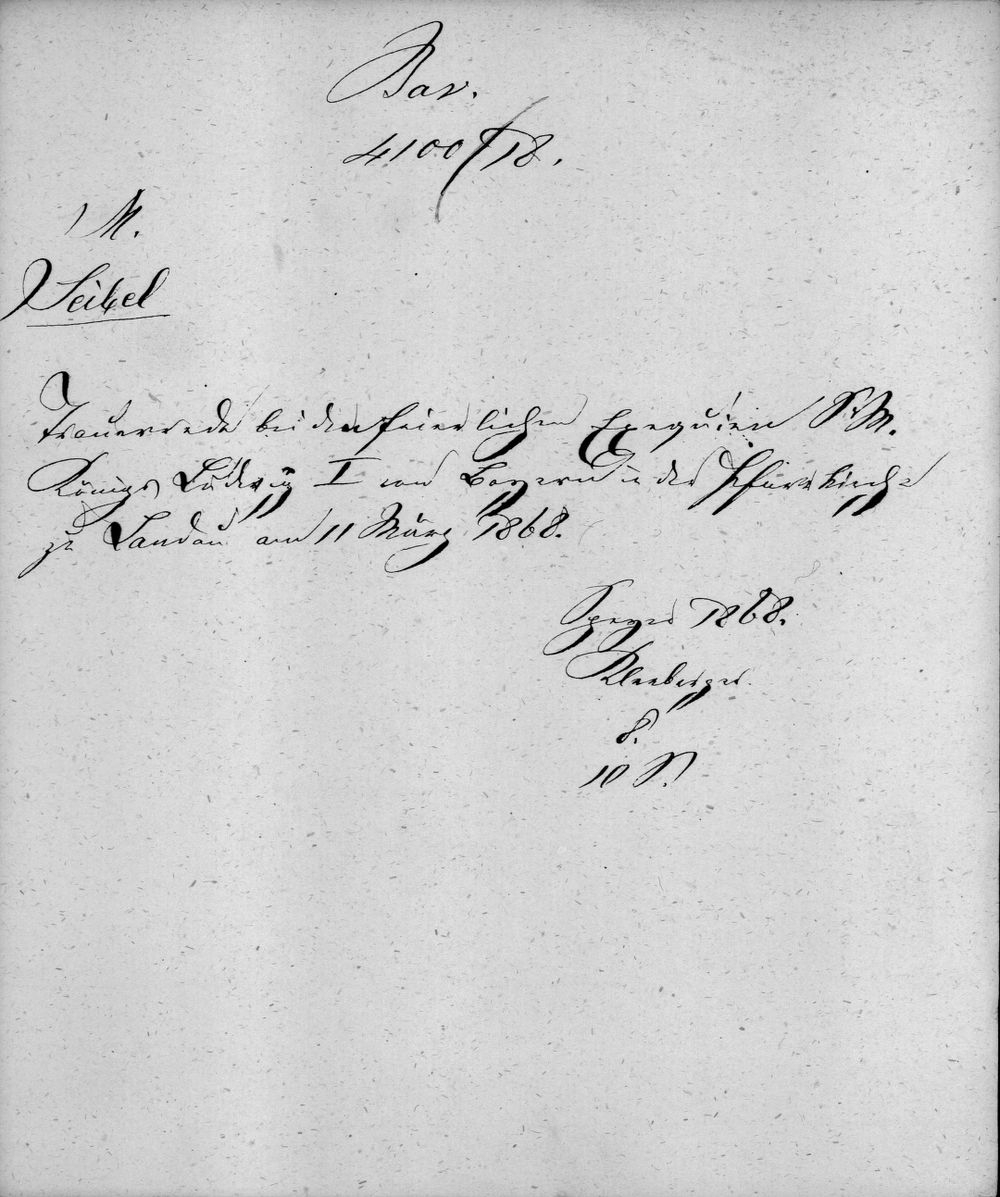 Bav.
4100/18.
M.
Seibel
Trauerrede bei den feierlichen Exequien Sr. M.
Königs Ludwig I von Bayern in der Pfarrkirche
zu Landau am 11 März 1868.
Speyer 1868.
Kleeberger.
8.
10 S.